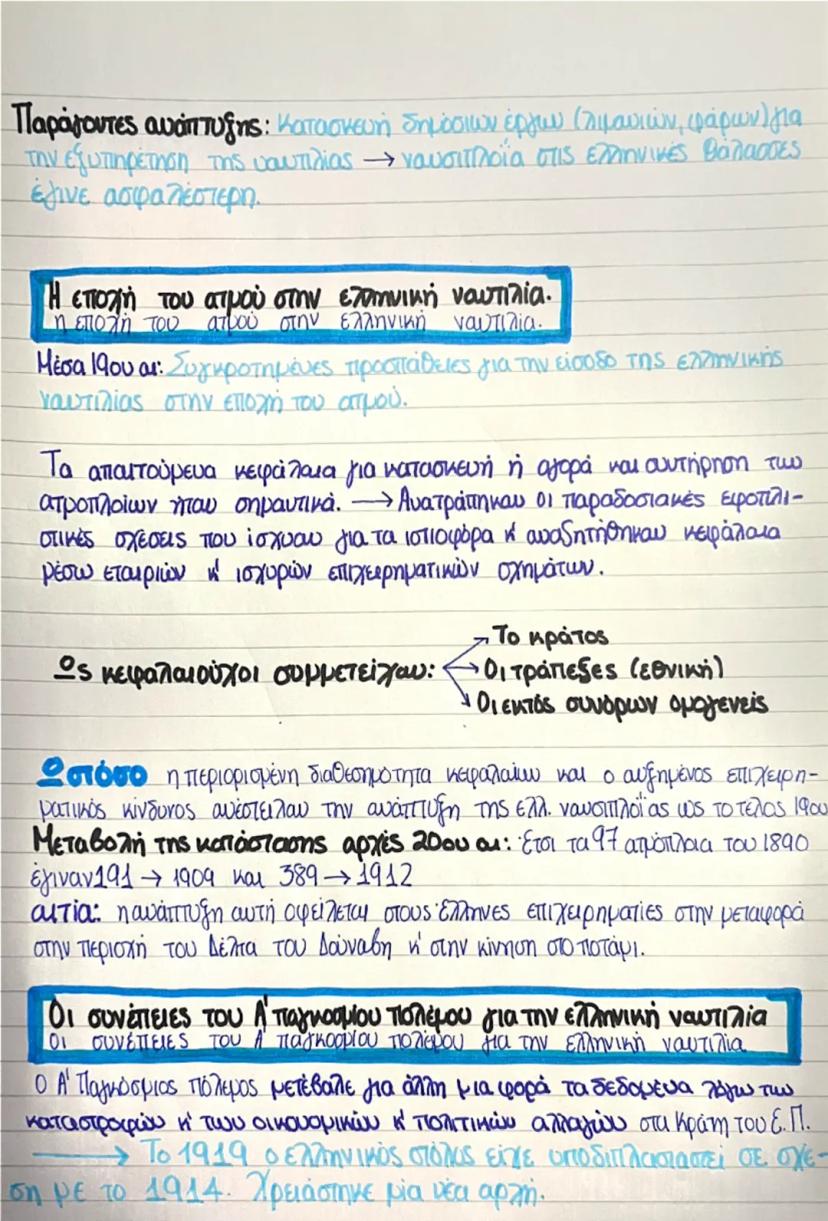 Παράγοντες ανάπτυξης: Κατασκευή δημόσιων έργων (λιμανιών, φάρων) για
την εξυπηρέτηση της ναυτιλίας → ναυσιπλοΐα στις ελληνικές θάλασσες
έγινε ασφαλέστερη.
Η εποχή του ατμού στην ελληνική ναυτιλία.
η εποχή του ατμού στην ελληνική ναυτιλία.
Μέσα 19ου αι: Συγκροτημένες προσπάθειες για την είσοδο της ελληνικής
ναυτιλίας στην εποχή του ατμού.
Τα απαιτούμενα κεφάλαια για κατασκευή ή αγορά και συντήρηση των
ατμοπλοίων ήταν σημαντικά. → Ανατράπηκαν οι παραδοσιακές εφοπλι-
στικές σχέσεις που ίσχυαν για τα ιστιοφόρα κ' αναζητήθηκαν κεφάλαια
μέσω εταιριών κ' ισχυρών επιχειρηματικών σχημάτων.
Ως κεφαλαιούχοι συμμετείχαν: → Το κράτος
→ Οι τράπεζες (εθνική)
→ Οι εκτός συνόρων ομογενείς
Ωστόσο η περιορισμένη διαθεσημότητα κεφαλαίων και ο αυξημένος επιχειρη-
ματικός κίνδυνος ανέστειλαν την ανάπτυξη της ελλ. ναυσιπλοΐας ως το τέλος 19ου
Μεταβολή της κατάστασης αρχές 20ου αι: Έτσι τα 97 ατμόπλοια του 1890
έγιναν 191 → 1909 και 389 → 1912
αιτία: η ανάπτυξη αυτή οφείλεται στους Έλληνες επιχειρηματίες στην μεταφορά
στην περιοχή του Δέλτα του Δούναβη κ' στην κίνηση στο ποτάμι.
Οι συνέπειες του Α' παγκοσμίου πολέμου για την ελληνική ναυτιλία
Οι συνέπειες του Α' παγκοσμίου πολέμου για την ελληνική ναυτιλία
Ο Α' Παγκόσμιος πόλεμος μετέβαλε για άλλη μια φορά τα δεδομένα λόγω των
καταστροφών κ' των οικονομικών κ' πολιτικών αλλαγών στα κράτη του Ε.Π.
→ Το 1919 ο ελληνικός στόλος είχε υποδιπλασιαστεί σε σχέ-
ση με το 1914. Χρειάστηκε μία νέα αρχή.